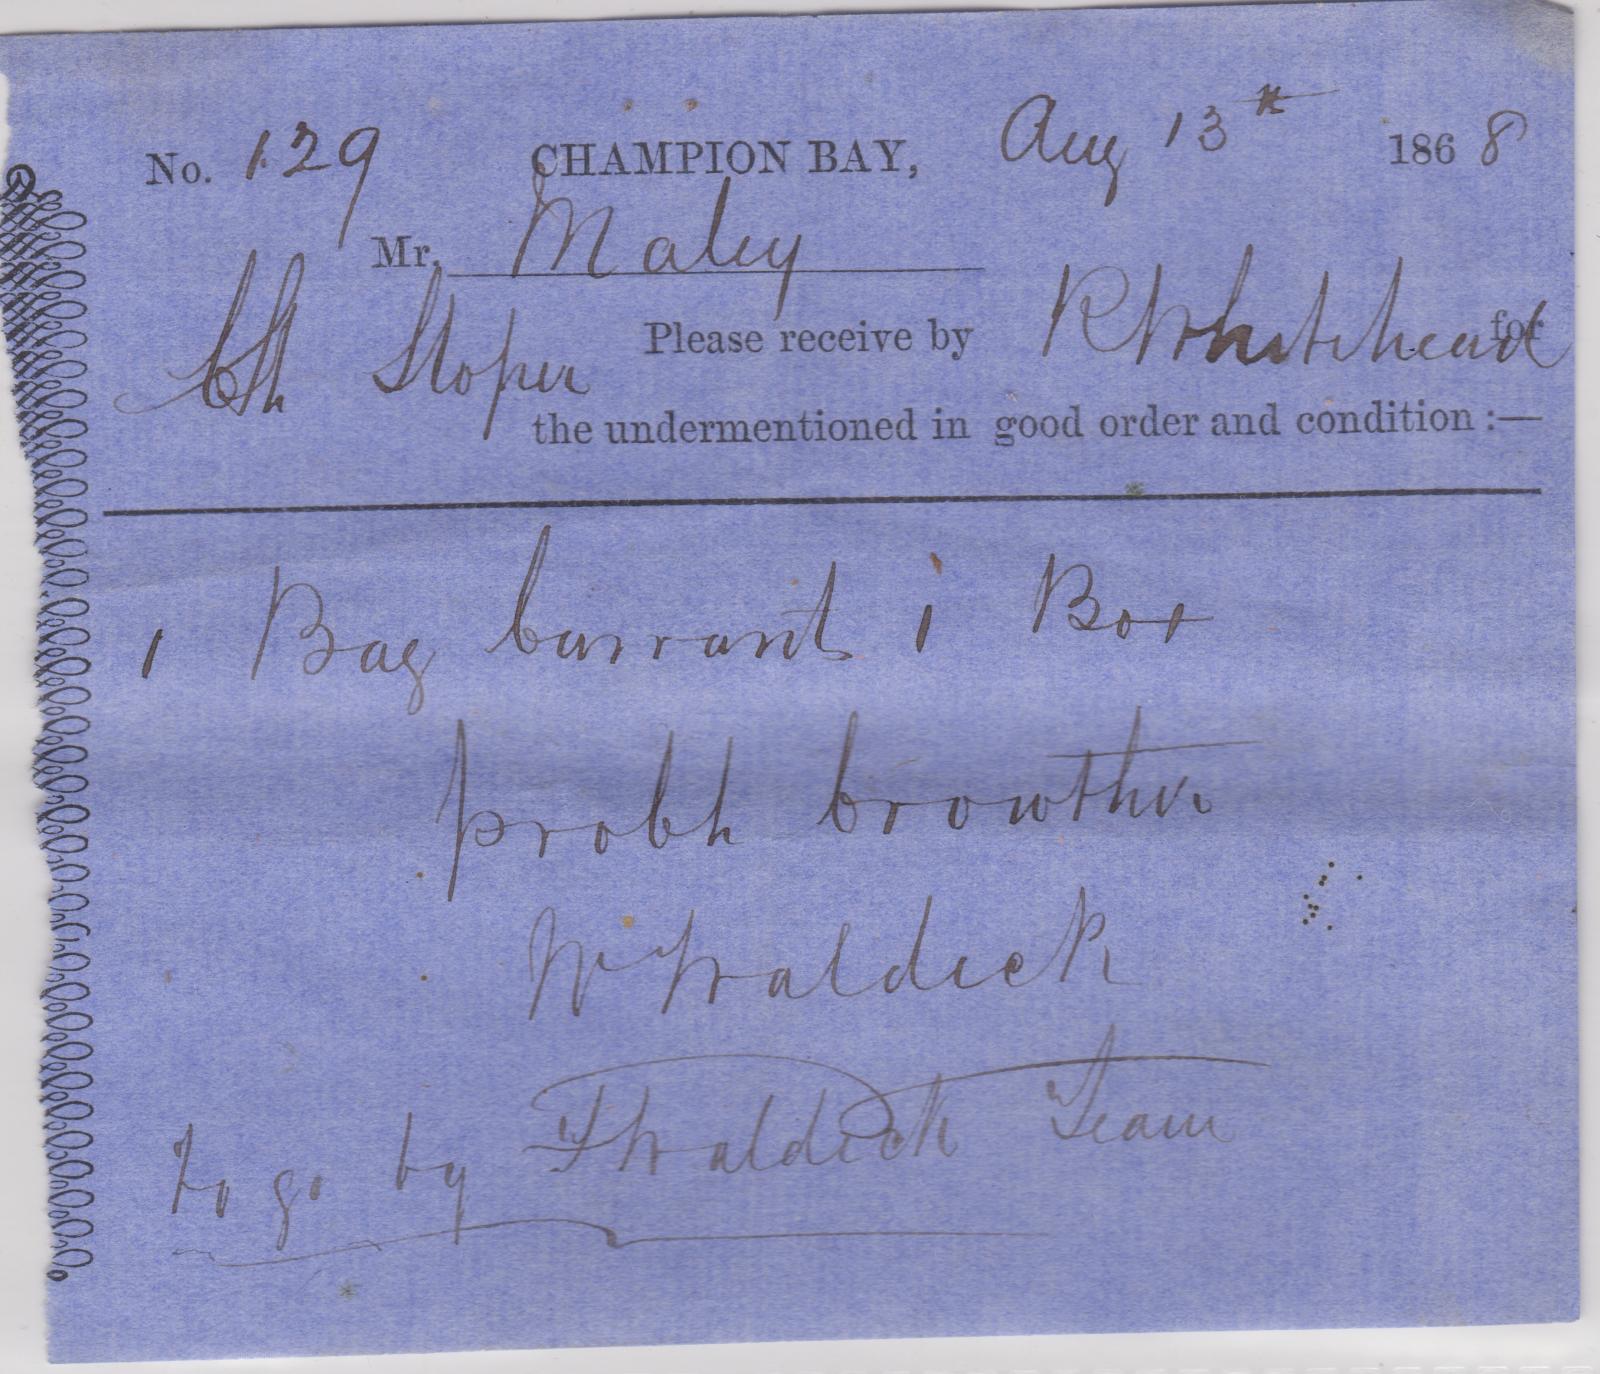 No. 129 CHAMPION BAY, Aug 13th 1868
Mr. Maley
Please receive by R Whitehead for
Sloper
the undermentioned in good order and condition :—
1 Bag Currants 1 Box
Crowther
W Waldeck
to go by F Waldeck Team